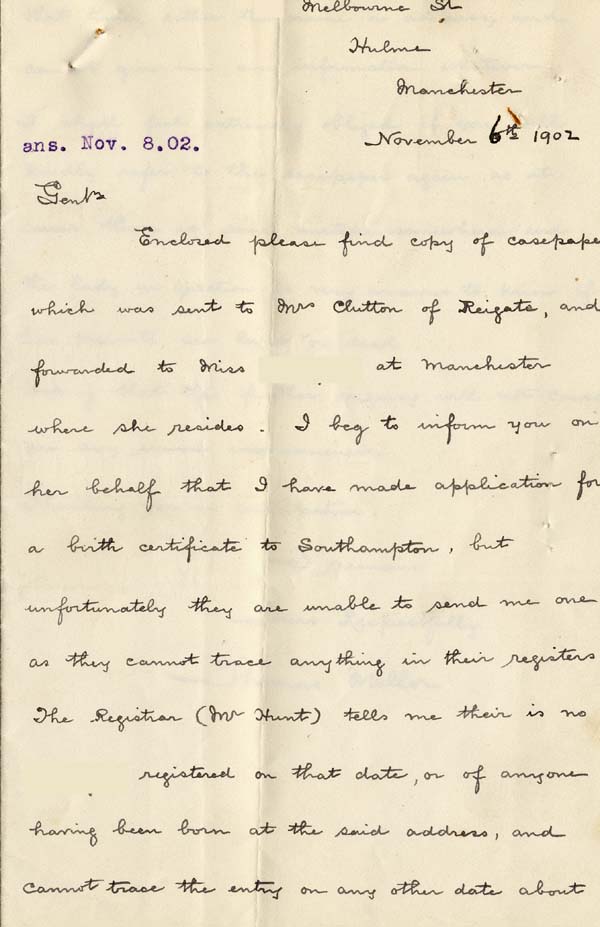 Melbourne St
Hulme
Manchester
November 6th 1902
ans. Nov. 8.02.
Gentn
Enclosed please find copy of casepape
which was sent to Mrs Clutton of Reigate, and
forwarded to Miss at Manchester
where she resides. I beg to inform you on
her behalf that I have made application for
a birth certificate to Southampton, but
unfortunately they are unable to send me one
as they cannot trace anything in their registers
The Registrar (Mr Hunt) tells me their is no
registered on that date, or of anyone
having been born at the said address, and
cannot trace the entry on any other date about